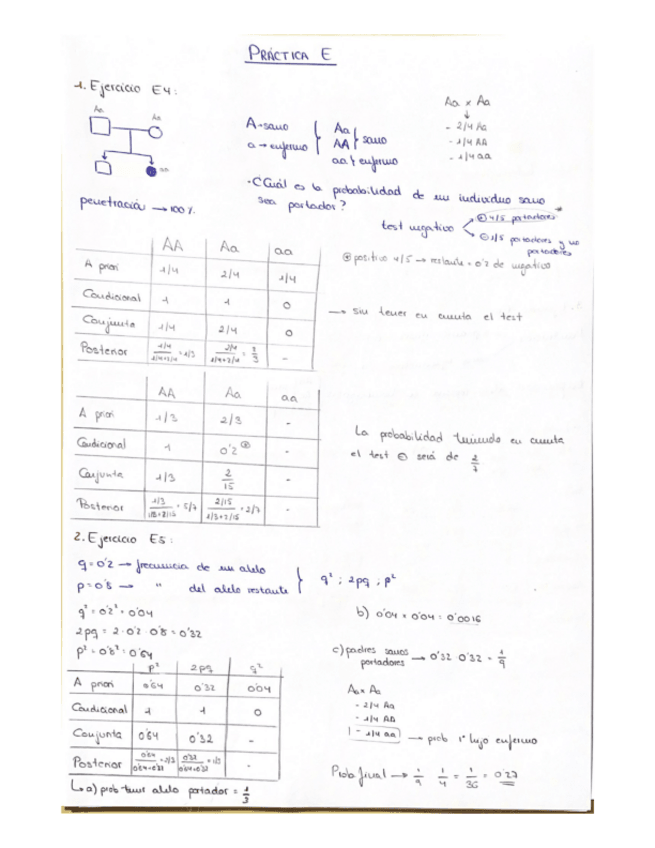 PRÁCTICA E
1. Ejercicio E4:
Aa
Aa
aa
penetración → 100%
A → sano
a → enfermo
Aa
AA
sano
aa } enfermo
Aa x Aa
- 2/4 Aa
- 1/4 AA
- 1/4 aa
· ¿Cuál es la probabilidad de un individuo sano
sea portador?
test negativo
⊕ 4/5 portadores
⊖ 1/5 portadores y no
portadores
⊕ positivo 4/5 → restante = 0'2 de negativo
AA Aa aa
A priori 1/4 2/4 1/4
Condicional 1 1 0
Conjunta 1/4 2/4 0
Posterior 1/4 / 1/4+2/4 = 1/3 2/4 / 1/4+2/4 = 2/3 -
→ sin tener en cuenta el test
AA Aa aa
A priori 1/3 2/3 -
Condicional 1 0'2 -
Conjunta 1/3 2/15 -
Posterior 1/3 / 1/3+2/15 = 5/7 2/15 / 1/3+2/15 = 2/7 -
La probabilidad teniendo en cuenta
el test ⊖ será de 2/7
2. Ejercicio E5:
q = 0'2 → frecuencia de un alelo
p = 0'8 → " del alelo restante
q² ; 2pq ; p²
q² = 0'2² = 0'04
2pq = 2 · 0'2 · 0'8 = 0'32
p² = 0'8² = 0'64
p² 2pq q²
A priori 0'64 0'32 0'04
Condicional 1 1 0
Conjunta 0'64 0'32 -
Posterior 0'64 / 0'64+0'32 = 2/3 0'32 / 0'64+0'32 = 1/3 -
↳ a) prob tener alelo portador = 1/3
b) 0'04 · 0'04 = 0'0016
c) padres sanos
portadores → 0'32 · 0'32 = 1/9
Aa x Aa
- 2/4 Aa
- 1/4 AA
- 1/4 aa → prob 1º hijo enfermo
Prob final → 1/9 · 1/4 = 1/36 = 0'27